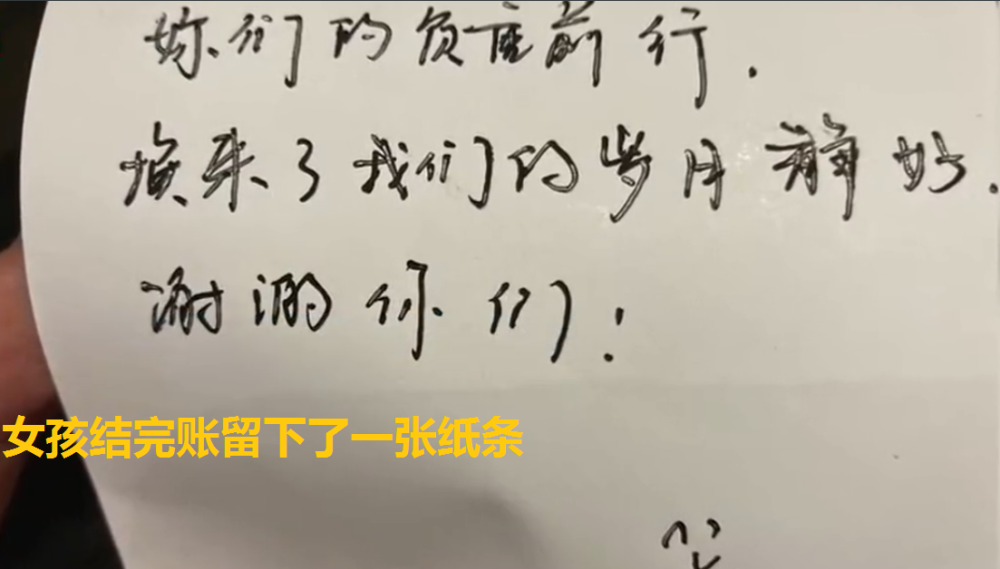 你们的负重前行.
换来了我们的岁月静好.
谢谢你们!
女孩结完账留下了一张纸条